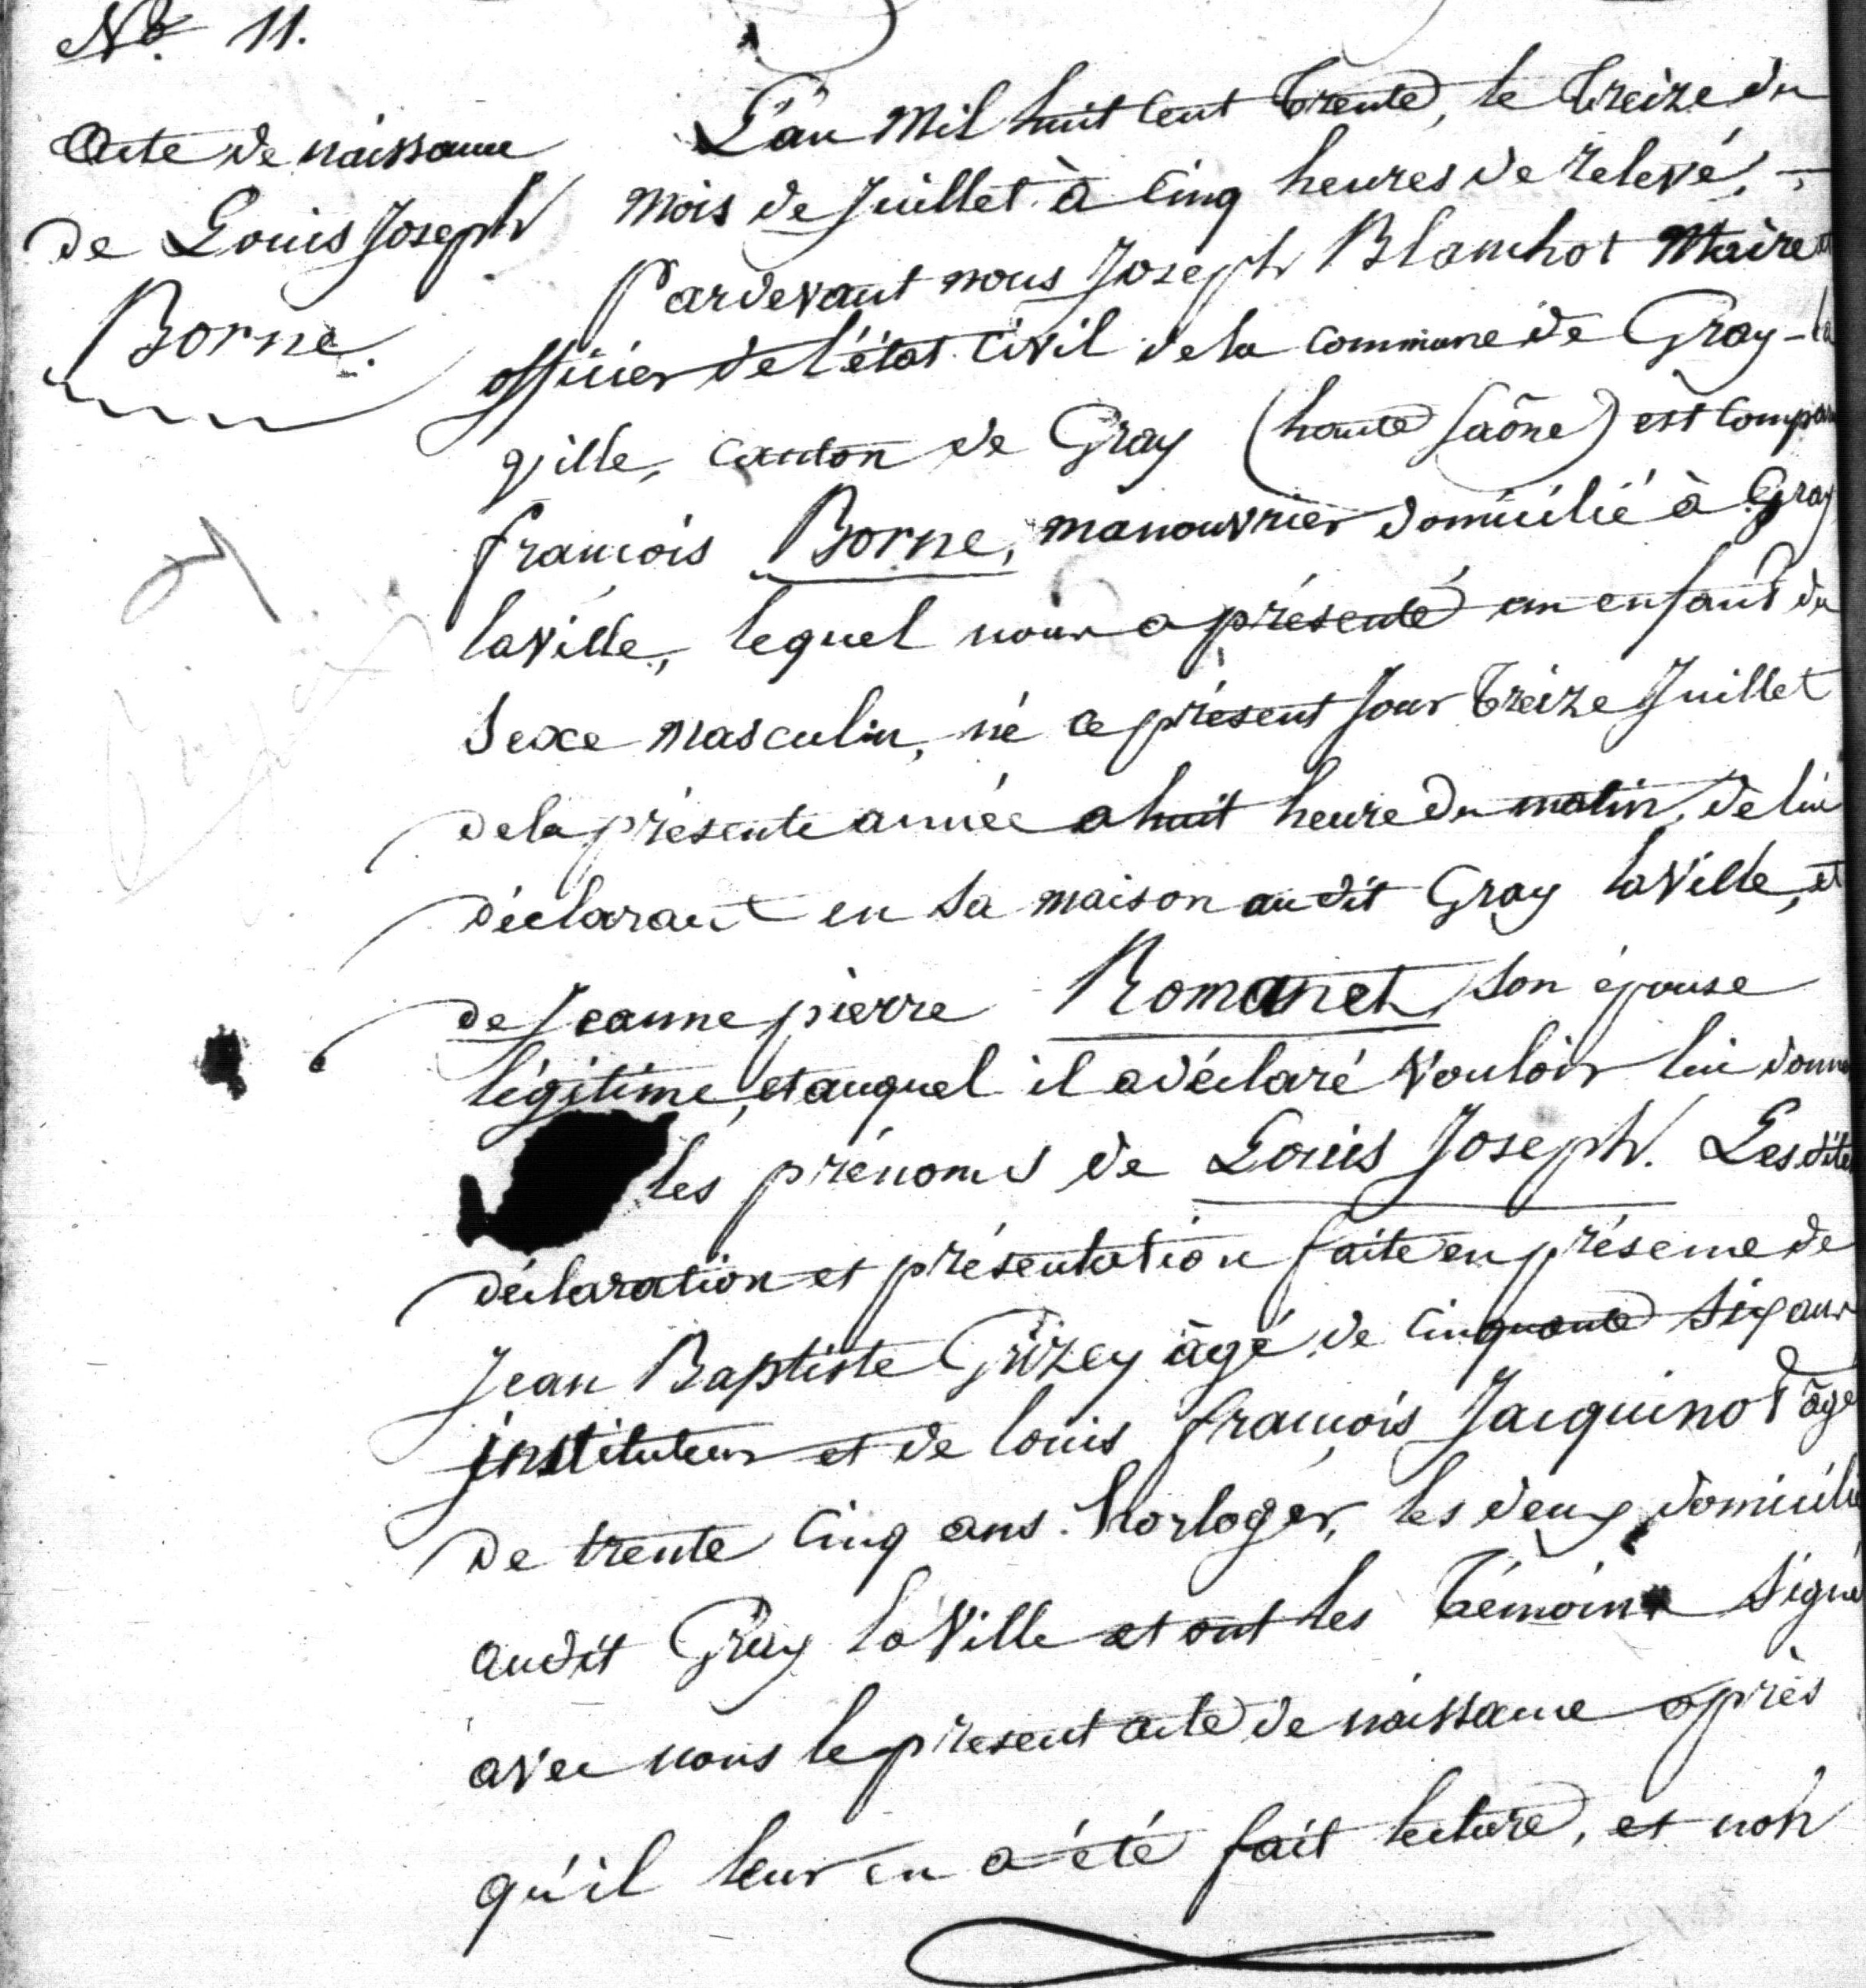 No. 11.
Acte de naissance
de Louis Joseph
Borne.
L'an Mil huit cent trente, le treize du
mois de Juillet à cinq heures de relevé,
Pardevant nous Joseph Blanchot Maire et
officier de l'état civil de la commune de Gray-la
ville, canton de Gray (haute Saône) est comparu
françois Borne, manouvrier domicilié à Gray
laville, lequel nous a présenté un enfant du
Sexe masculin, né ce présent jour treize Juillet
de la présente année a huit heure du matin, de lui
déclarant en sa maison audit Gray laville, et
de Jeanne pierre Romanet, son épouse
légitime, et auquel il a déclaré vouloir lui donner
les prénoms de Louis Joseph. Lesdites
déclaration et présentation faite en présence de
Jean Baptiste Grizey âgé de cinquante six ans
instituteur et de louis françois Jacquinot âgé
de trente cinq ans horloger, les deux domicilié
audit Gray laville et ont les témoins signé
avec nous le présent acte de naissance après
qu'il leur en a été fait lecture, et non